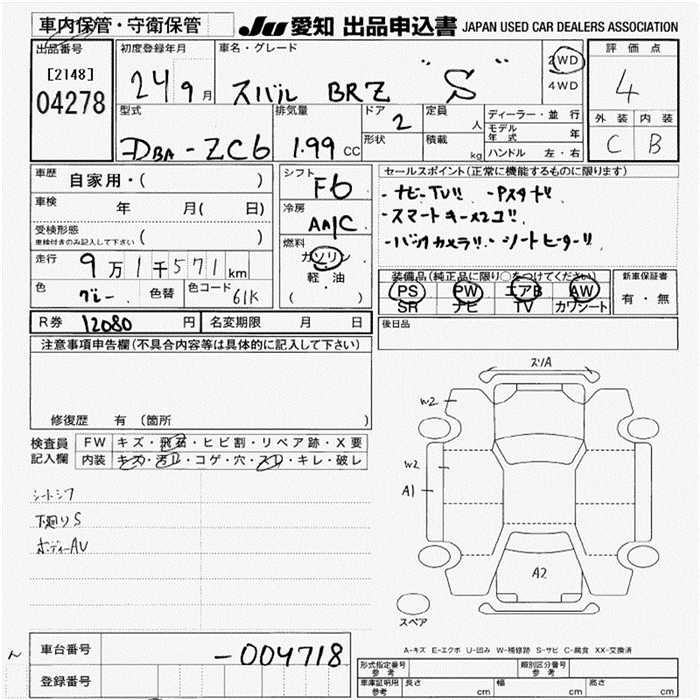 車内保管・守衛保管
JU 愛知 出品申込書 JAPAN USED CAR DEALERS ASSOCIATION
出品番号
[2148]
04278
初度登録年月
24 9月
車名・グレード
スバル BRZ "S"
2WD
4WD
評価点
4
外装 内装
C B
型式
DBA-ZC6
排気量
1.99 CC
ドア
2
形状
定員
人
積載
kg
ディーラー・並行
モデル年式 年
ハンドル 左・右
車歴 自家用・( )
車検 年 月( 日)
受検形態
車検付きのみ記入して下さい ( )
走行 9万1千571km
色 グレー 色替 色コード 61K
シフト
F6
冷房
AA/C
燃料
ガソリン
軽・油
( )
セールスポイント(正常に機能するものに限ります)
・ナビTV!! ・Pスタート!!
・スマートキーx2コ!!
・バックカメラ!!・シートヒーター!!
装備品(純正品に限り○をつけてください)
PS PW エアB AW
SR ナビ TV カワシート
新車保証書
有・無
R券 12080 円 名変期限 月 日
後日品
注意事項申告欄(不具合内容等は具体的に記入して下さい)
修復歴 有 (箇所 )
検査員
記入欄
FW キズ・飛石・ヒビ割・リペア跡・X要
内装 キズ・汚れ・コゲ・穴・スレ・キレ・破レ
シートシワ
下廻りS
ボディーAU
スリA
W2
W2
A1
A2
スペア
A-キズ E-エクボ U-凹み W-補修跡 S-サビ C-腐食 XX-交換済
車台番号 -004718
登録番号
型式指定番号
参考
類別区分番号
参考
車庫証明用
参考
長さ cm 幅 cm 高さ cm